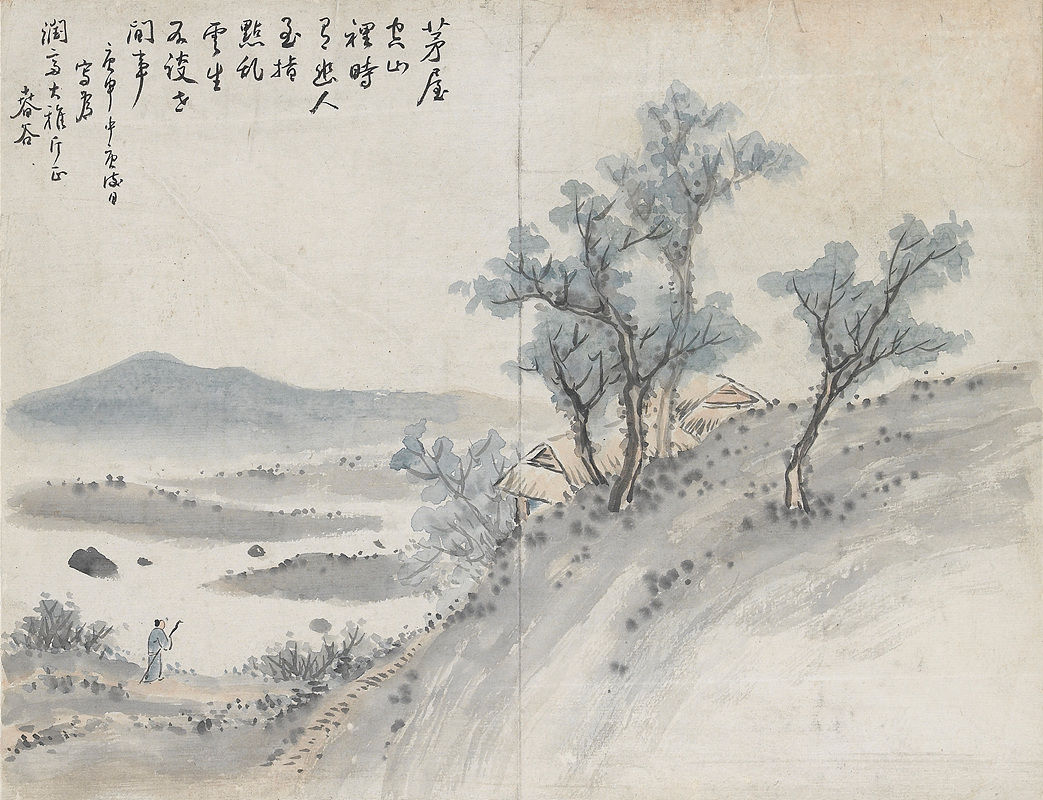 茅屋
空山
裡時
有幽人
至指
點乱
雲生
不談世
間事
庚申中庚日
寫為
潤大雅斤正
春谷